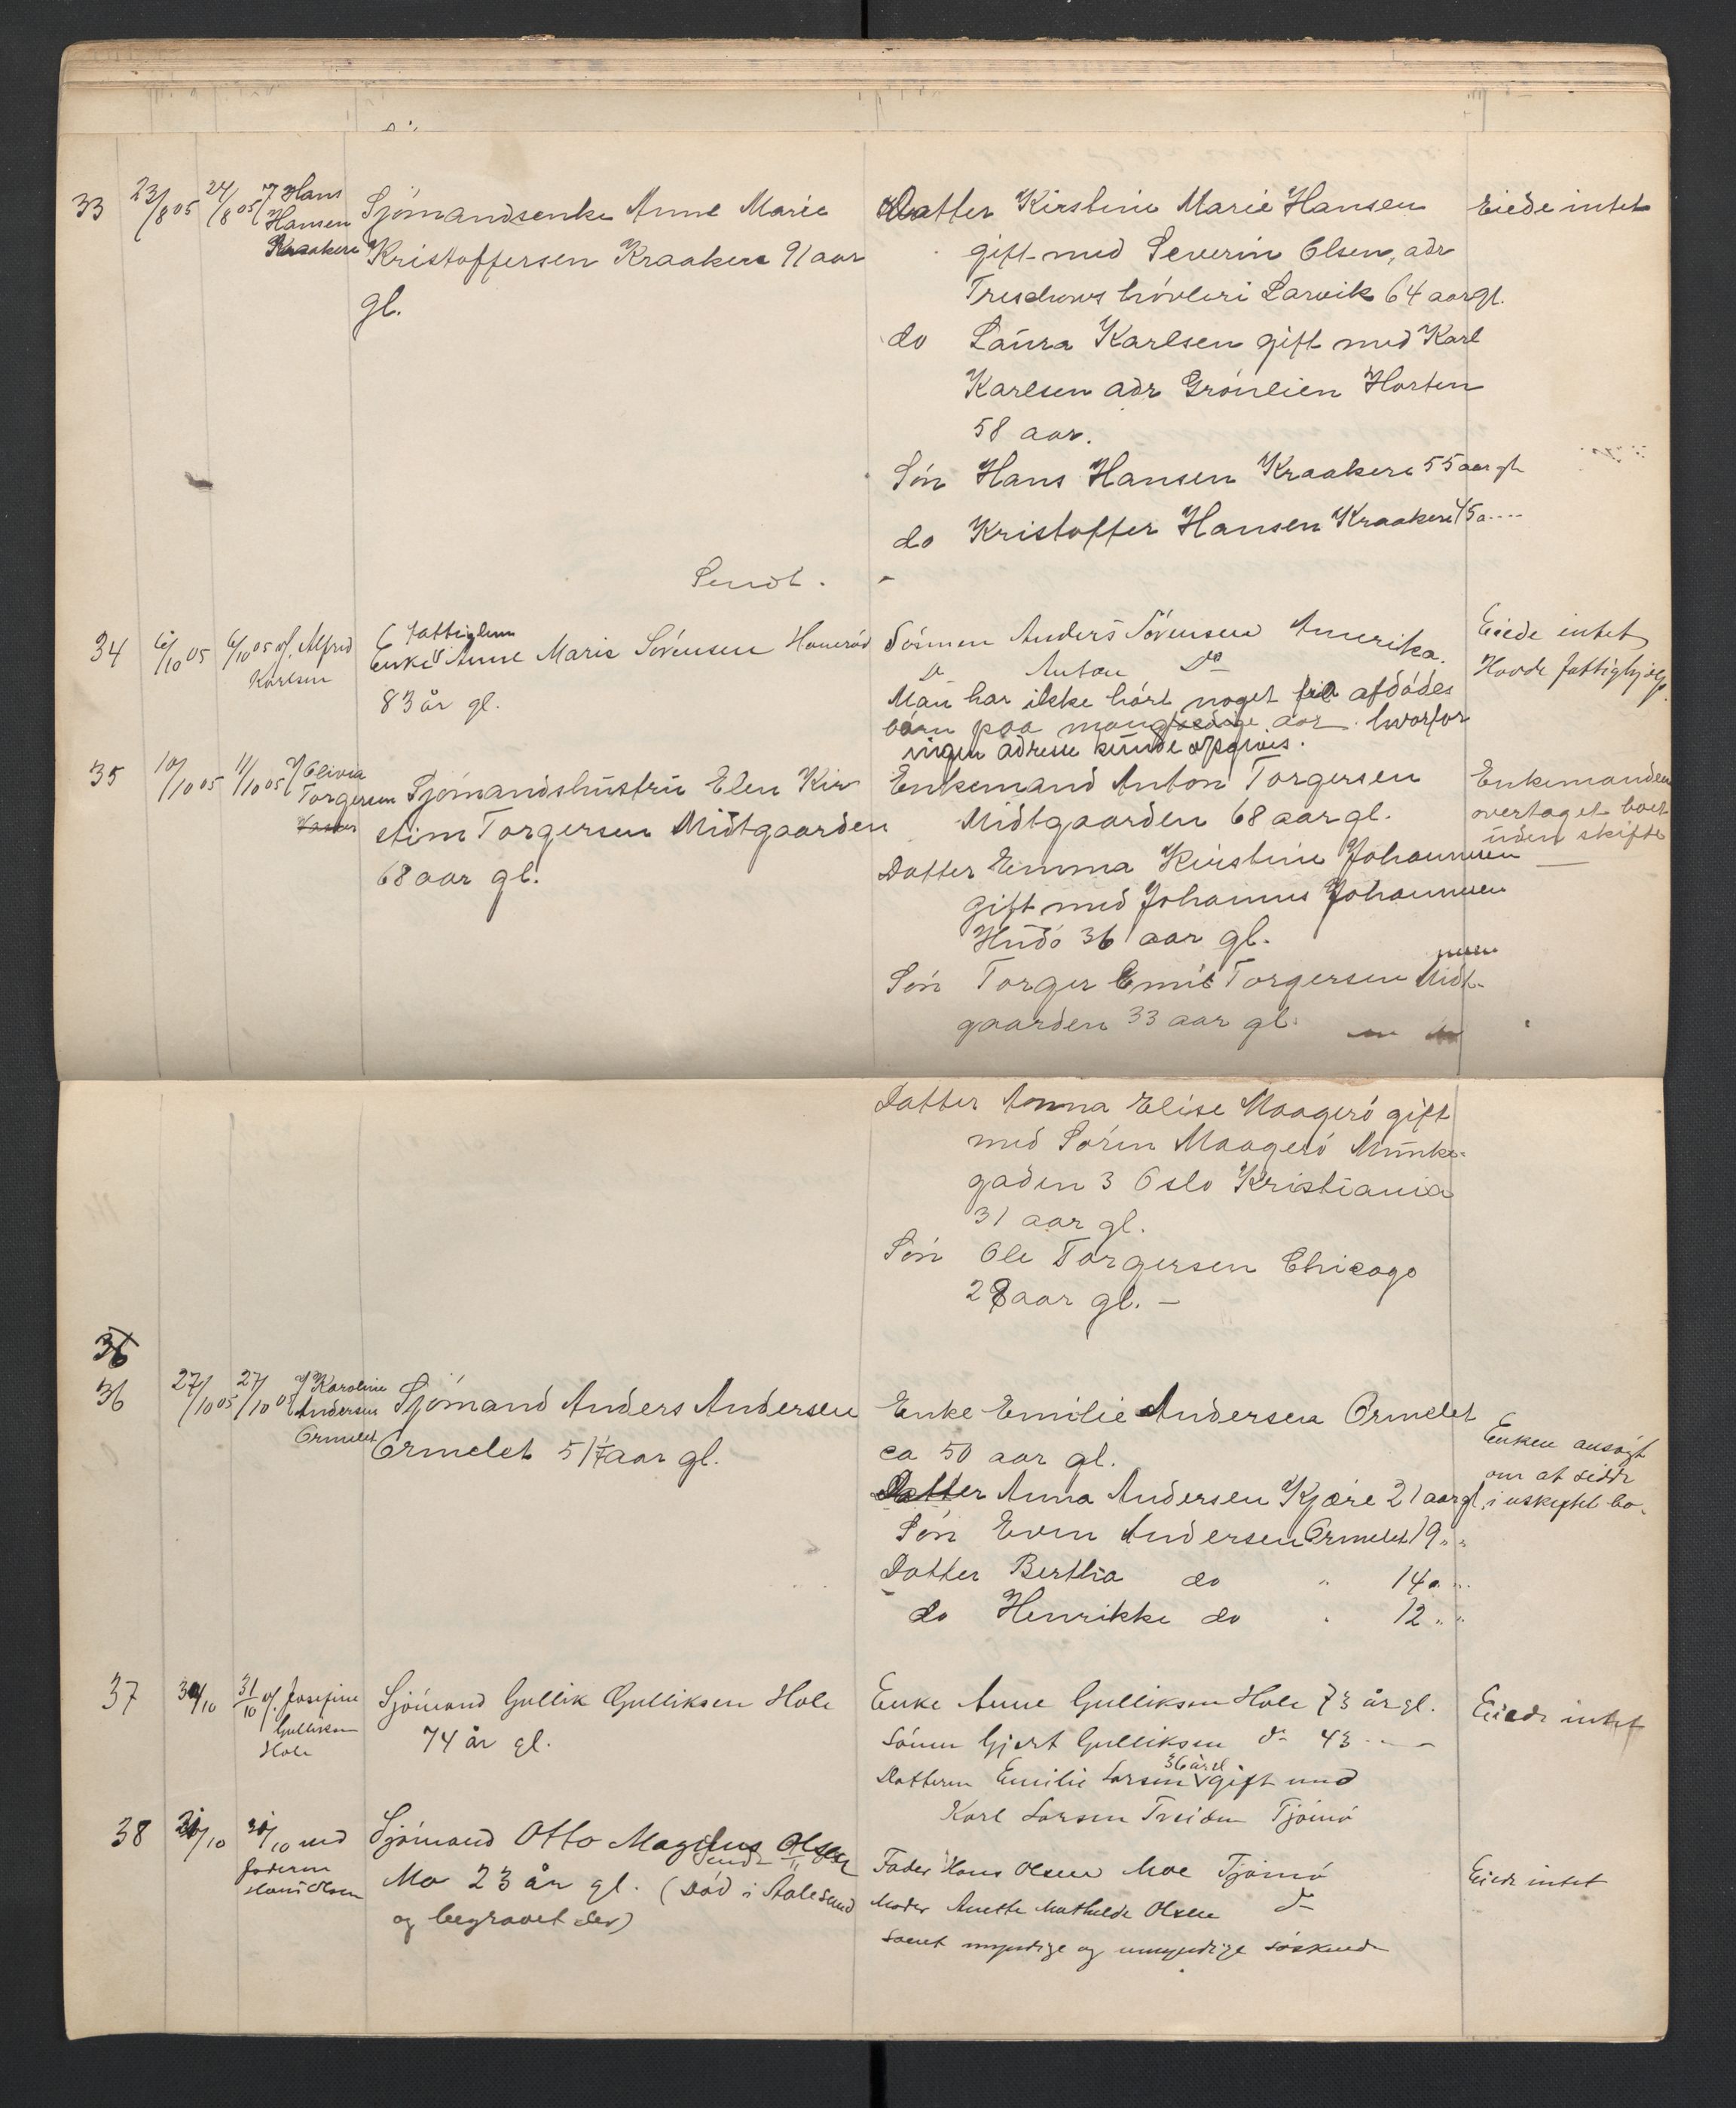 33 23/8 05 24/8 05 v/ Hans
Hansen
Kraakere
Sjömandsenke Anne Marie
Kristoffersen Kraakere 91 aar
gl.
Datter Kirstine Marie Hansen
gift med Severin Olsen, adr
Treschows hövleri Larvik 64 aar gl.
do Laura Karlsen gift med Karl
Karlsen adr Grönlien Horten
58 aar.
Sön Hans Hansen Kraakere 55 aar gl
do Kristoffer Hansen Kraakere 45 a
Eiede intet
Sendt. -
34 6/10 05 6/10 05 v/ Alfred
Karlsen
fattiglem
Enke Anne Marie Sörensen Honeröd
83 år gl.
Sönnen Anders Sörensen Amerika.
Do Anton Do
Man har ikke hört noget fra afdödes
börn paa mange aar hvorfor
ingen adresse kunde opgives.
Eiede intet
Havde fattighjelp.
35 10/10 05 11/10 05 v/ Olivia
Torgersen
Sjömandshustru Elen Kir
stine Torgersen Midtgaarden
68 aar gl.
Enkemand Anton Torgersen
Midtgaarden 68 aar gl.
Datter Emma Kirstine Johannesen
gift med Johannes Johannesen
Hudö 36 aar gl.
Sön Torger Emil Torgersen Midt-
gaarden 33 aar gl.
Enkemanden
overtaget boet
uden skifte
Datter Anna Elise Maagerö gift
med Sören Maagerö Munke-
gaden 3 Oslo Kristiania
31 aar gl.
Sön Ole Torgersen Chicago
28 aar gl. -
36
36 27/10 05 27/10 05 v/ Karoline
Andersen
Ormelet
Sjömand Anders Andersen
Ormelet 51 aar gl.
Enke Emilie Andersen Ormelet
ca 50 aar gl.
Datter Anna Andersen Kjære 21 aar gl
Sön Even Andersen Ormelet 19 " "
Datter Bertha do " 14 " "
do Henrikke do " 12 " "
Enken ansögt
om at sidde
i uskiftet bo.
37 30/10 31/10 v/ Josefine
Gulliksen
Hole
Sjömand Gullik Gulliksen Hole
74 år gl.
Enke Anne Gulliksen Hole 73 år gl.
Sönnen Gjert Gulliksen do 43
Datteren Emilie Larsen 36 år gl gift med
Karl Larsen Treiden Tjömö
Eiede intet
38 /10 /10 ved
faderen
Hans Olsen
Sjömand Otto Magnus Olsen
Mo 23 år gl. (Död i Aalesund
og begravet der)
Fader Hans Olsen Moe Tjömö
Moder Anette Mathilde Olsen do
samt myndige og umyndige söskende
Eiede intet